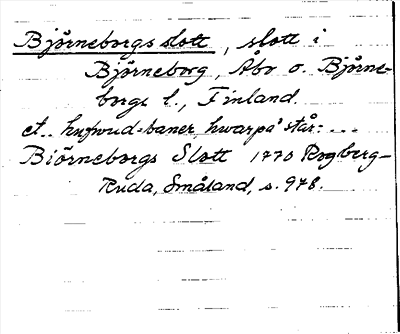 Björneborgs slott, slott i
Björneborg, Åbo o. Björne-
borgs l., Finland.
et.. hufwud-baner hwarpå står: ...
Biörneborgs Slott 1770 Rogberg-
Ruda, Småland, s. 978.